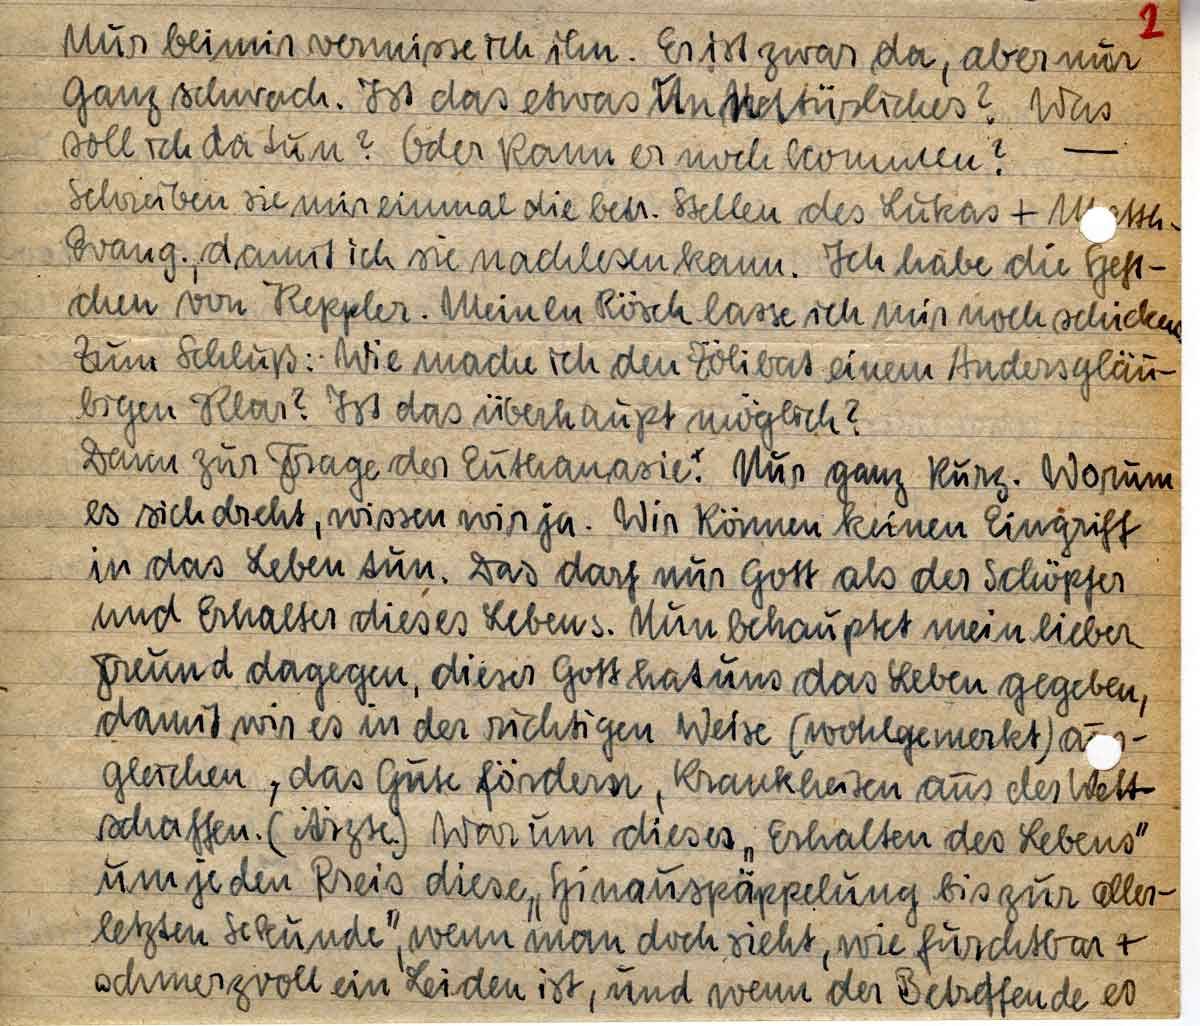 2
Nur bei mir vermisse ich ihn. Er ist zwar da, aber nur
ganz schwach. Ist das etwas Unnatürliches? Was
soll ich da tun? Oder kann er noch kommen? —
Schreiben sie mir einmal die betr. Stellen des Lukas + Matth.
Evang., damit ich sie nachlesen kann. Ich habe die Heft-
chen von Keppler. Meinen Rösch lasse ich mir noch schicken.
Zum Schluß: Wie mache ich den Zölibat einem Andersgläu-
bigen klar? Ist das überhaupt möglich?
Dann zur Frage der Euthanasie. Nur ganz kurz. Worum
es sich dreht, wissen wir ja. Wir können keinen Eingriff
in das Leben tun. Das darf nur Gott als der Schöpfer
und Erhalter dieses Lebens. Nun behauptet mein lieber
Freund dagegen, dieser Gott hat uns das Leben gegeben,
damit wir es in der richtigen Weise (wohlgemerkt) aus-
gleichen, das Gute fördern, Krankheiten aus der Welt
schaffen. (Ärzte.) Warum dieses „Erhalten des Lebens"
um jeden Preis diese „Hinauspäppelung bis zur aller-
letzten Sekunde", wenn man doch sieht, wie furchtbar +
schmerzvoll ein Leiden ist, und wenn der Betreffende es